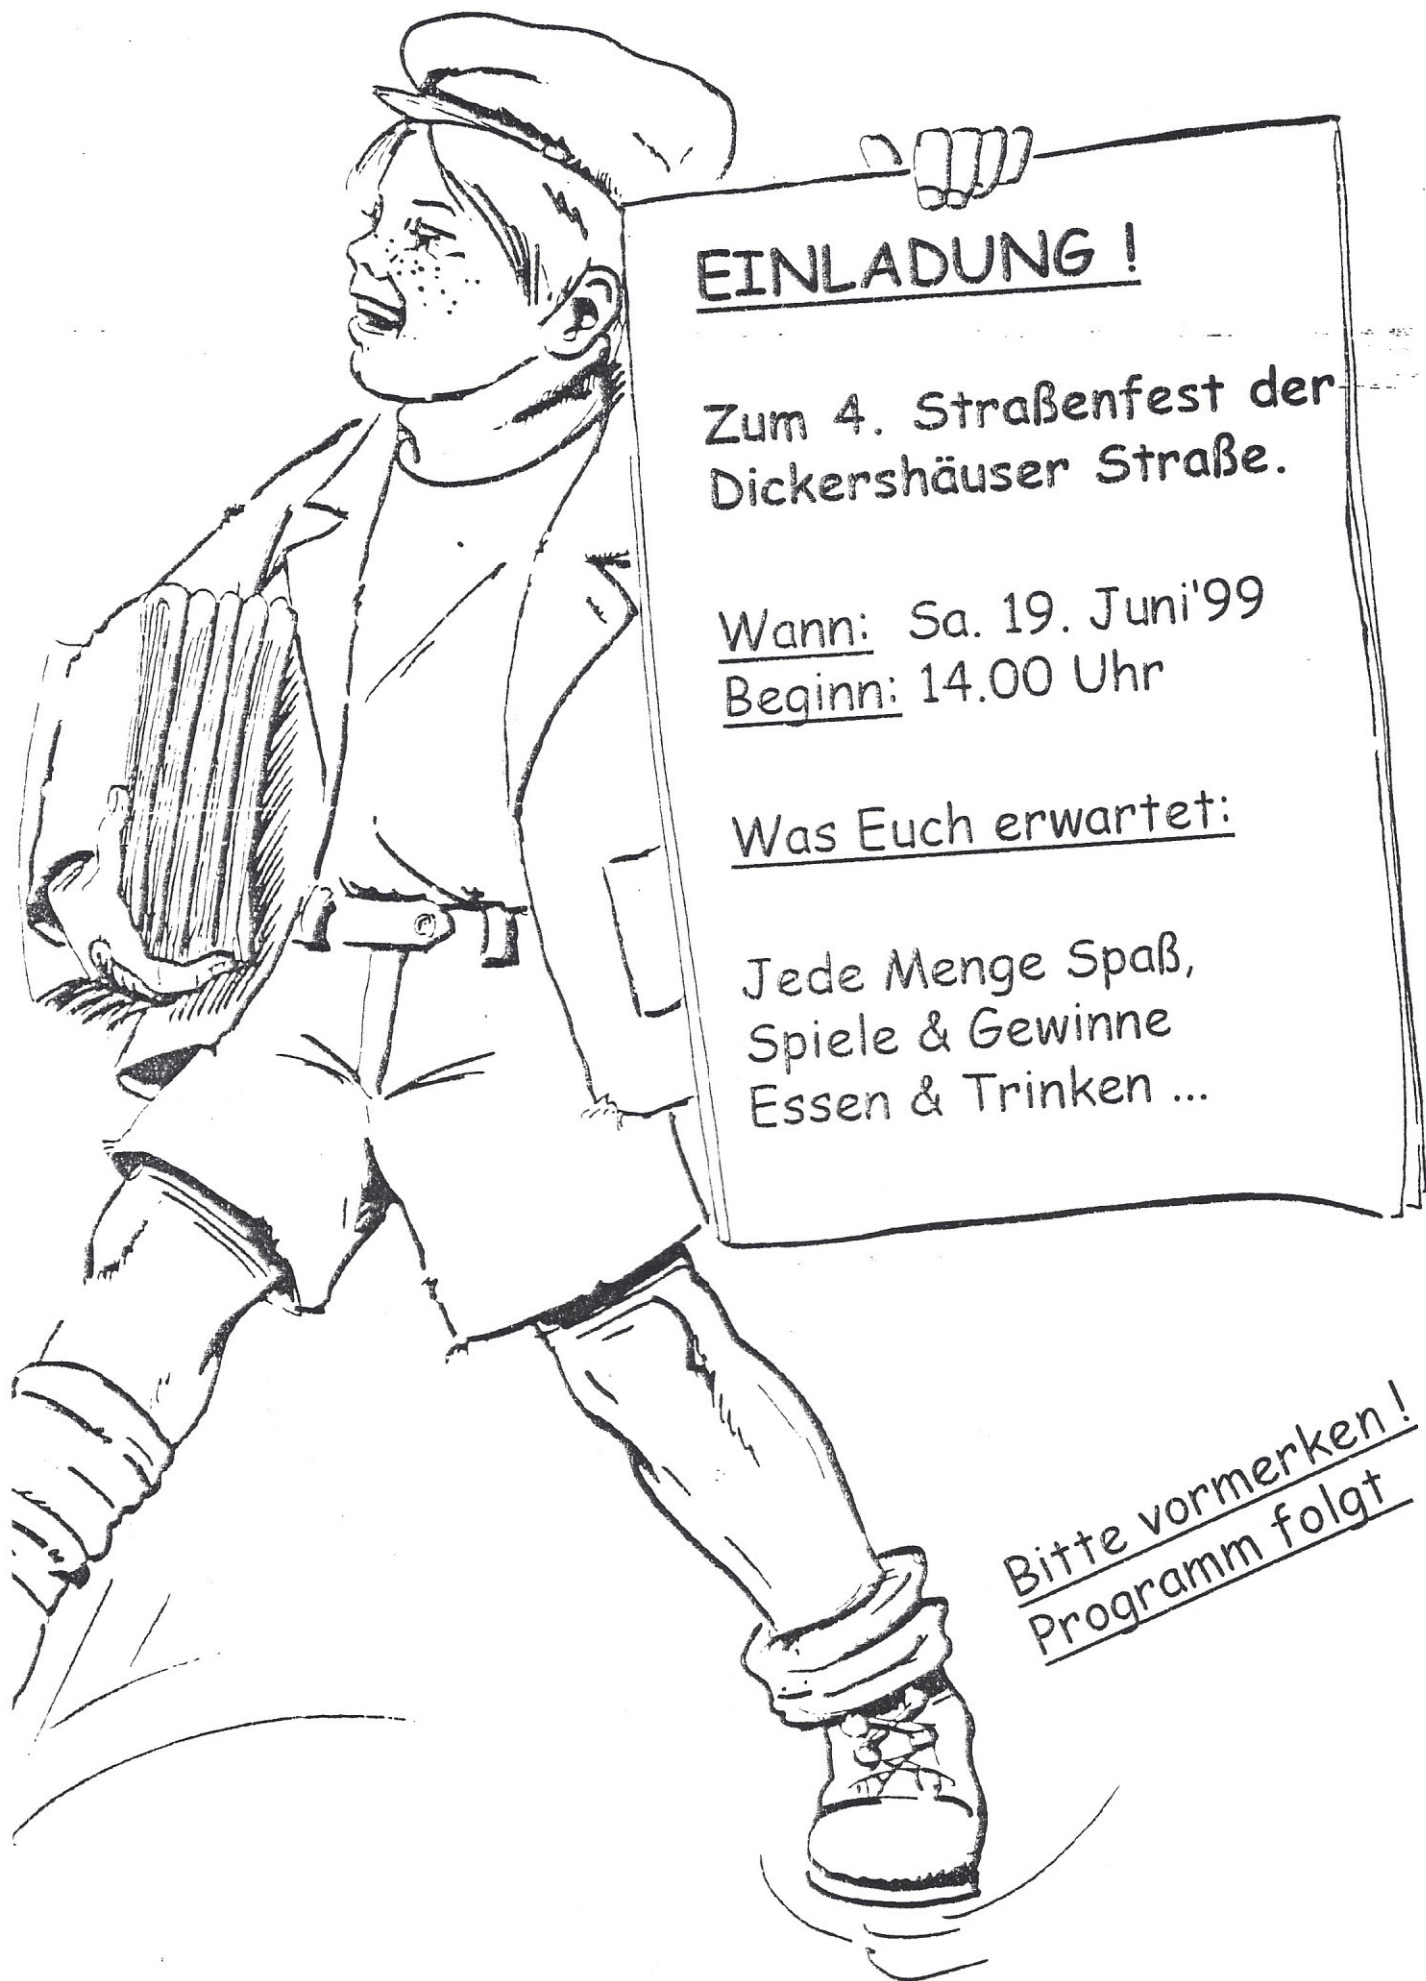 EINLADUNG !
Zum 4. Straßenfest der
Dickershäuser Straße.
Wann: Sa. 19. Juni'99
Beginn: 14.00 Uhr
Was Euch erwartet:
Jede Menge Spaß,
Spiele & Gewinne
Essen & Trinken ...
Bitte vormerken !
Programm folgt